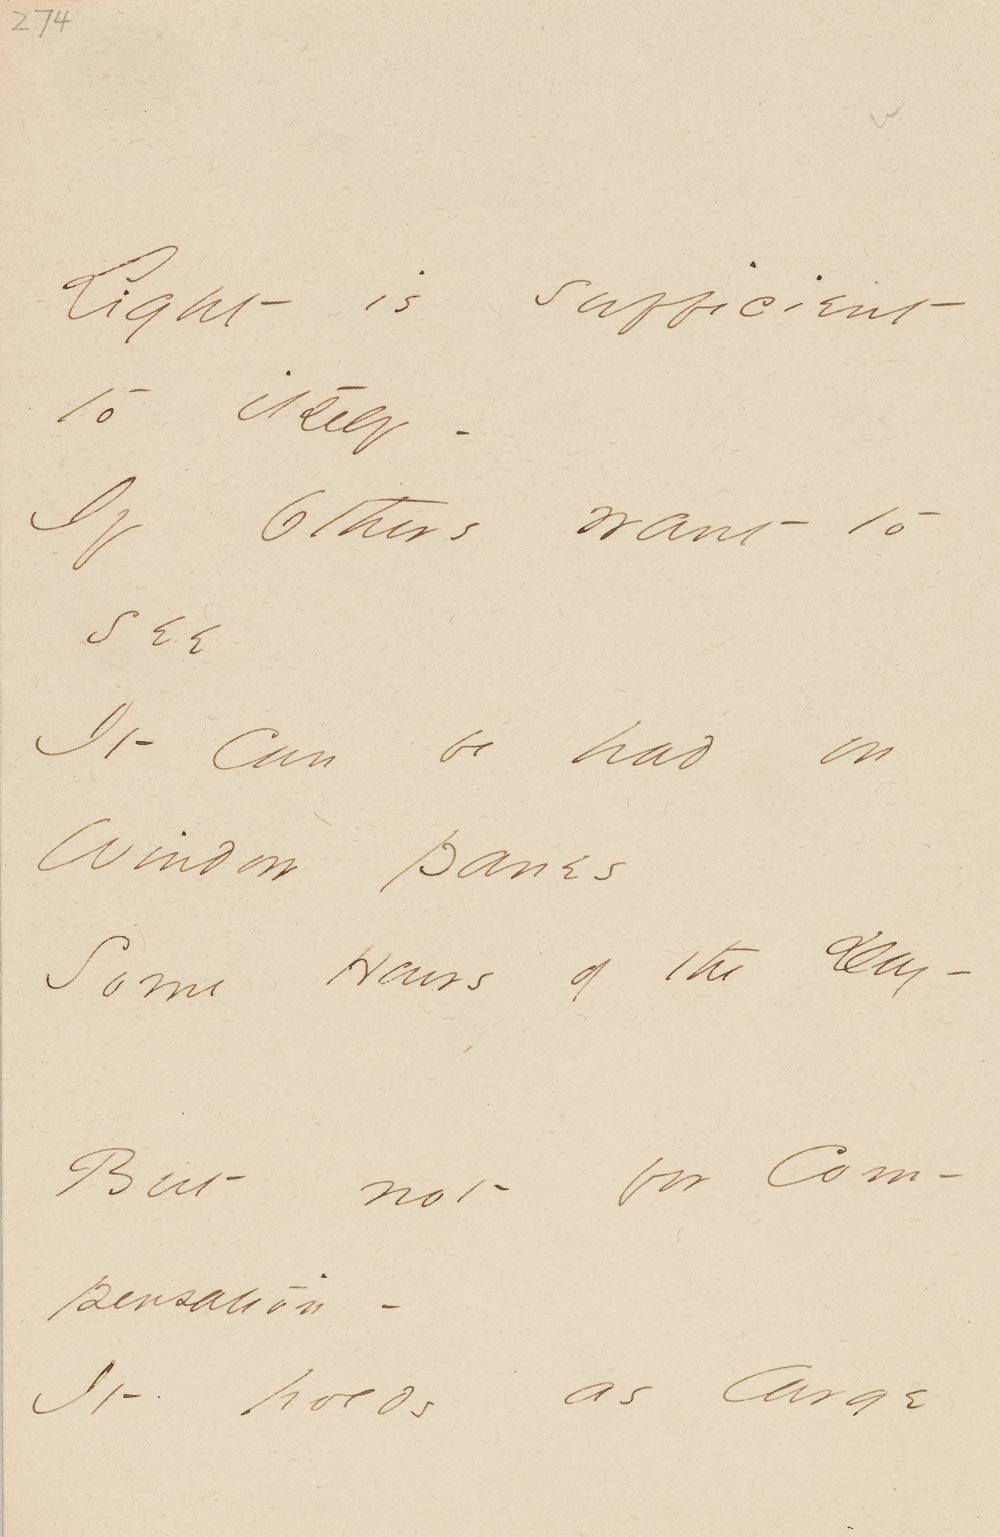 274
Light is sufficient
to itself -
If Others want to
see
It Can be had on
Window Panes
Some Hours of the Day -
But not for Com-
pensation -
It holds as Large